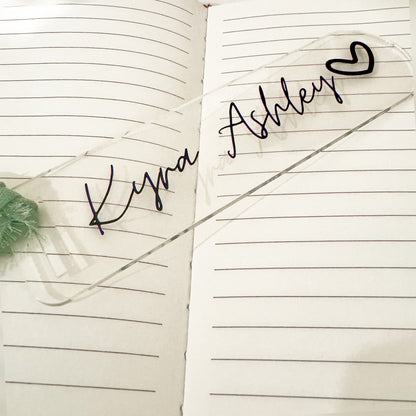 Kyra Ashley